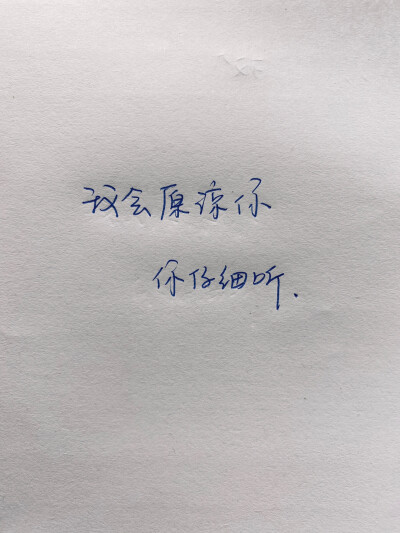 我会原谅你
你仔细听.